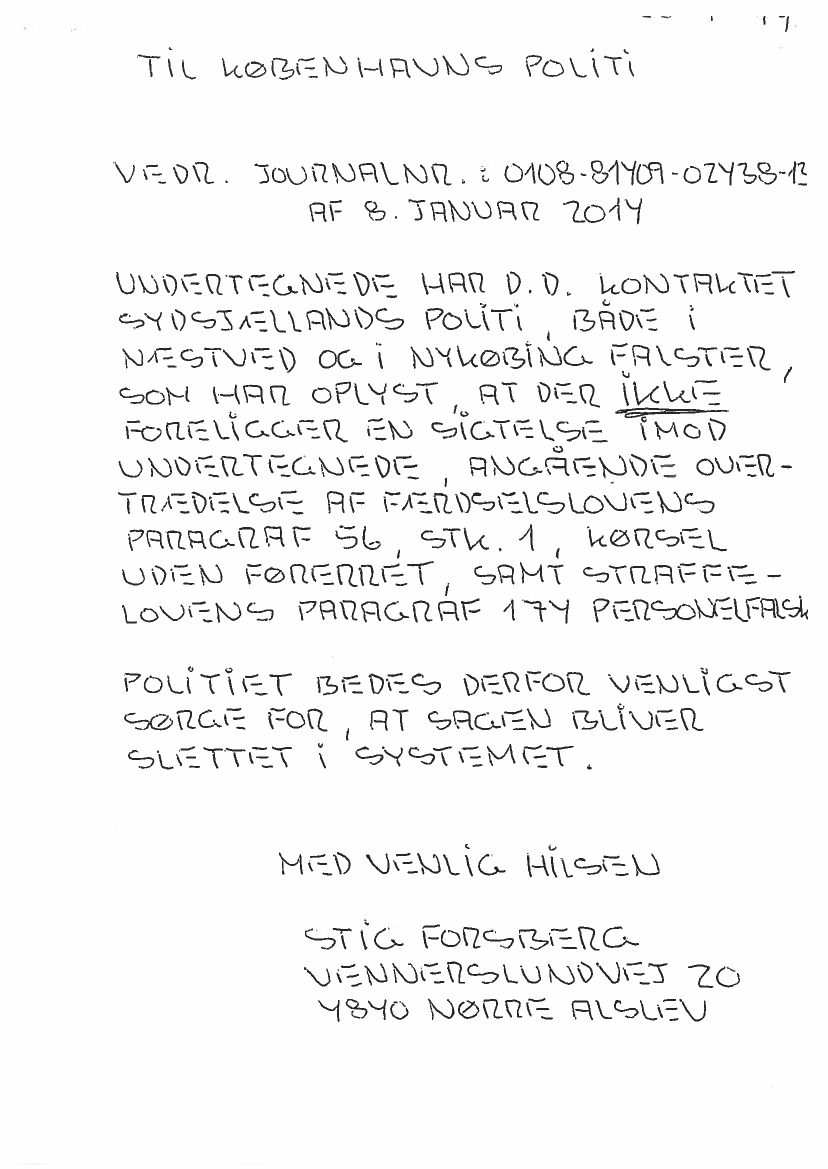 TIL KØBENHAVNS POLITI
VEDR. JOURNALNR.: 0108-81409-02438-13
AF 8. JANUAR 2014
UNDERTEGNEDE HAR D.D. KONTAKTET
SYDSJÆLLANDS POLITI, BÅDE I
NÆSTVED OG I NYKØBING FALSTER,
SOM HAR OPLYST, AT DER IKKE
FORELIGGER EN SIGTELSE IMOD
UNDERTEGNEDE, ANGÅENDE OVER-
TRÆDELSE AF FÆRDSELSLOVENS
PARAGRAF 56, STK. 1, KØRSEL
UDEN FØRERRET, SAMT STRAFFE-
LOVENS PARAGRAF 174 PERSONELFALSK
POLITIET BEDES DERFOR VENLIGST
SØRGE FOR, AT SAGEN BLIVER
SLETTET I SYSTEMET.
MED VENLIG HILSEN
STIG FORSBERG
VENNERSLUNDVEJ 20
4840 NØRRE ALSLEV